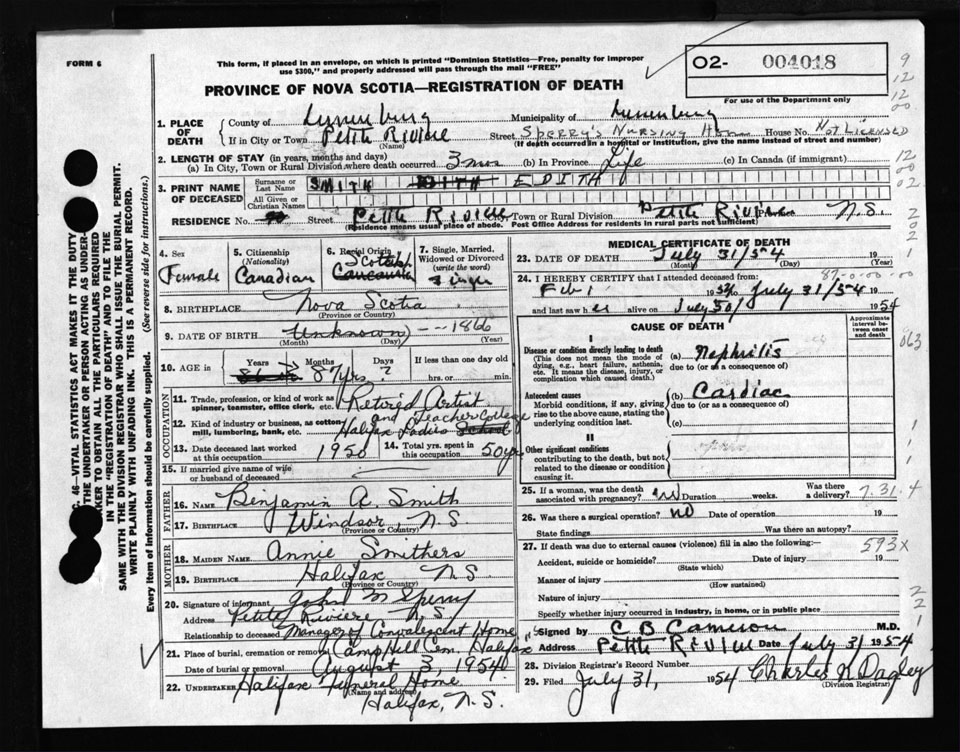 FORM 6
This form, if placed in an envelope, on which is printed "Dominion Statistics—Free, penalty for improper
use $300," and properly addressed will pass through the mail "FREE"
O2- 004018
For use of the Department only
PROVINCE OF NOVA SCOTIA—REGISTRATION OF DEATH
1. PLACE OF DEATH
County of Lunenburg Municipality of Lunenburg
If in City or Town Petite Riviere (Name) Street Sperry's Nursing Home House No. Not Licensed
(If death occurred in a hospital or institution, give the name instead of street and number)
2. LENGTH OF STAY (in years, months and days)
(a) In City, Town or Rural Division where death occurred 3 mos (b) In Province Life (c) In Canada (if immigrant)
3. PRINT NAME OF DECEASED
Surname or Last Name SMITH EDITH
All Given or Christian Names
RESIDENCE No. Street Petite Riviere City, Town or Rural Division Petite Riviere N.S.
(Residence means usual place of abode. Post Office Address for residents in rural parts not sufficient)
4. Sex Female
5. Citizenship (Nationality) Canadian
6. Racial Origin Scotch Caucasian
7. Single, Married, Widowed or Divorced (write the word) Single
8. BIRTHPLACE Nova Scotia
(Province or Country)
9. DATE OF BIRTH Unknown -- 1866
(Month) (Day) (Year)
10. AGE in Years Months Days If less than one day old
87 yrs ? hrs. or min.
OCCUPATION
11. Trade, profession or kind of work as spinner, teamster, office clerk, etc. Retired Artist
and Teacher College
12. Kind of industry or business, as cotton mill, lumbering, bank, etc. Halifax Ladies School
13. Date deceased last worked at this occupation 1950
14. Total yrs. spent in this occupation 50 yrs
15. If married give name of wife or husband of deceased
FATHER
16. NAME Benjamin A. Smith
17. BIRTHPLACE Windsor, N.S.
(Province or Country)
MOTHER
18. MAIDEN NAME Annie Smithers
19. BIRTHPLACE Halifax N S
(Province or Country)
20. Signature of informant John M Sperry
Address Petite Riviere N.S.
Relationship to deceased Manager of Convalescent Home
21. Place of burial, cremation or removal Camp Hill Cem. Halifax
Date of burial or removal August 3, 1954
22. UNDERTAKER Halifax Funeral Home
(Name and address)
Halifax, N.S.
MEDICAL CERTIFICATE OF DEATH
23. DATE OF DEATH July 31/54 19
(Month) (Day) (Year)
24. I HEREBY CERTIFY that I attended deceased from: 87-0-00-00
Feb 1 1954 to July 31/54
and last saw her alive on July 30/ 1954
CAUSE OF DEATH
Approximate interval between onset and death
I
Disease or condition directly leading to death (a) Nephritis
(This does not mean the mode of dying, e.g., heart failure, asthenia, etc. It means the disease, injury, or complication which caused death.)
due to (or as a consequence of)
Antecedent causes (b) Cardiac
Morbid conditions, if any, giving rise to the above cause, stating the underlying condition last.
due to (or as a consequence of)
(c)
II
Other significant conditions
contributing to the death, but not related to the disease or condition causing it.
25. If a woman, was the death associated with pregnancy? no Duration weeks. Was there a delivery? 7.31.4
26. Was there a surgical operation? no Date of operation 19
State findings Was there an autopsy?
27. If death was due to external causes (violence) fill in also the following: 593x
Accident, suicide or homicide? Date of injury 19
(State which)
Manner of injury
(How sustained)
Nature of injury
Specify whether injury occurred in industry, in home, or in public place
Signed by C B Cameron M.D.
Address Petite Riviere Date July 31 1954
28. Division Registrar's Record Number
29. Filed July 31, 1954 Charles K Dagley
(Division Registrar)
9
12
12
00
12
00
02
202
1
063
1
4
221
C. 46—VITAL STATISTICS ACT MAKES IT THE DUTY
THE UNDERTAKER OR PERSON ACTING AS UNDER-
TAKER TO OBTAIN ALL THE PARTICULARS REQUIRED
IN THE "REGISTRATION OF DEATH" AND TO FILE THE
SAME WITH THE DIVISION REGISTRAR WHO SHALL ISSUE THE BURIAL PERMIT.
WRITE PLAINLY WITH UNFADING INK. THIS IS A PERMANENT RECORD.
Every item of Information should be carefully supplied. (See reverse side for instructions.)